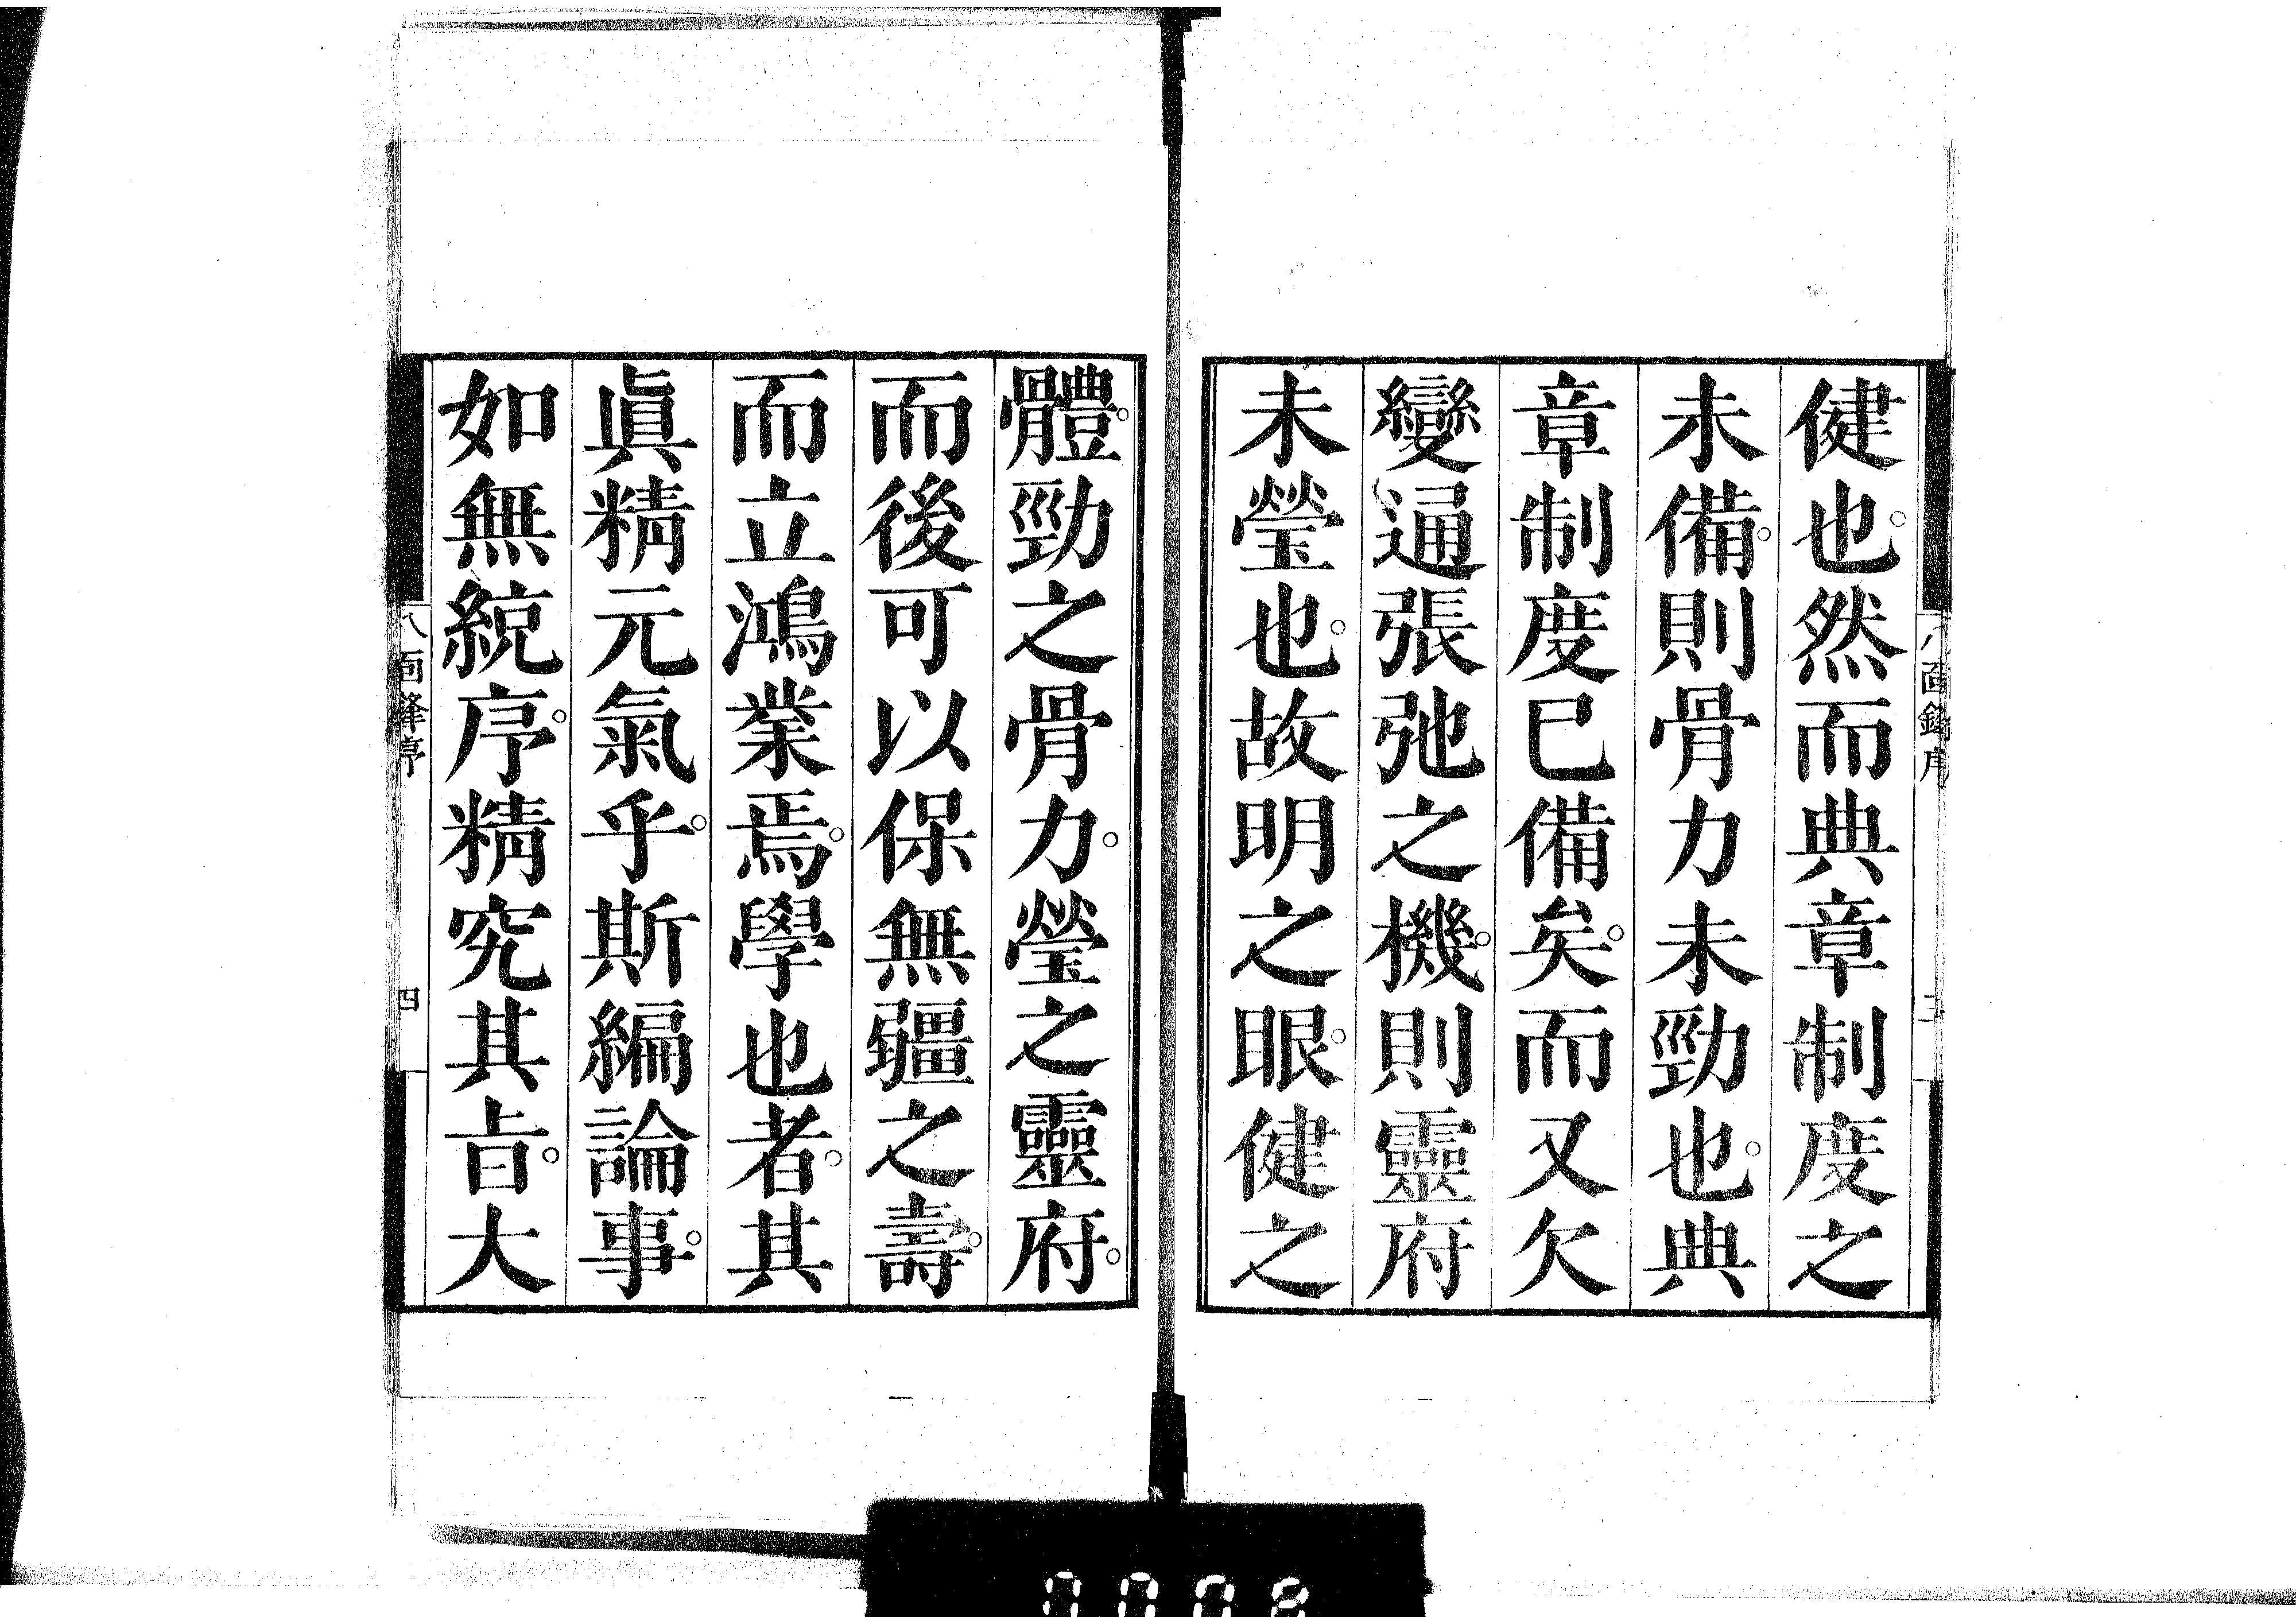 健也。然而典章制度之
未備。則骨力未勁也。典
章制度已備矣。而又欠
變通張弛之機。則靈府
未瑩也。故明之眼。健之
體。勁之骨力。瑩之靈府。
而後可以保無疆之壽。
而立鴻業焉。學也者。其
眞精元氣乎。斯編論事。
如無統序。精究其㫖。大
八面鋒序
四